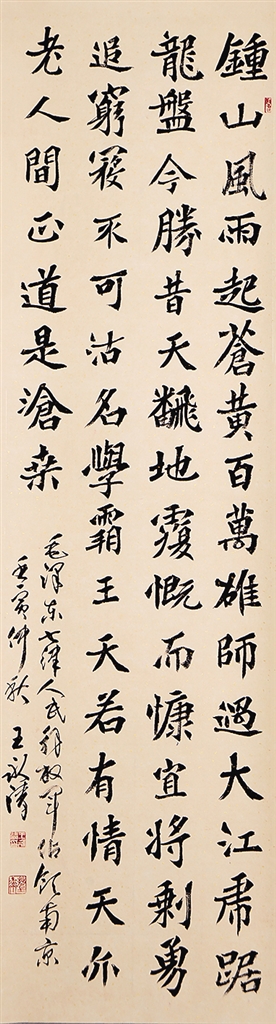 鍾山風雨起蒼黃百萬雄師過大江虎踞
龍盤今勝昔天飜地覆慨而慷宜將剩勇
追窮寇不可沽名學霸王天若有情天亦
老人間正道是滄桑
毛澤东七律人民解放軍佔領南京
壬寅仲秋 王